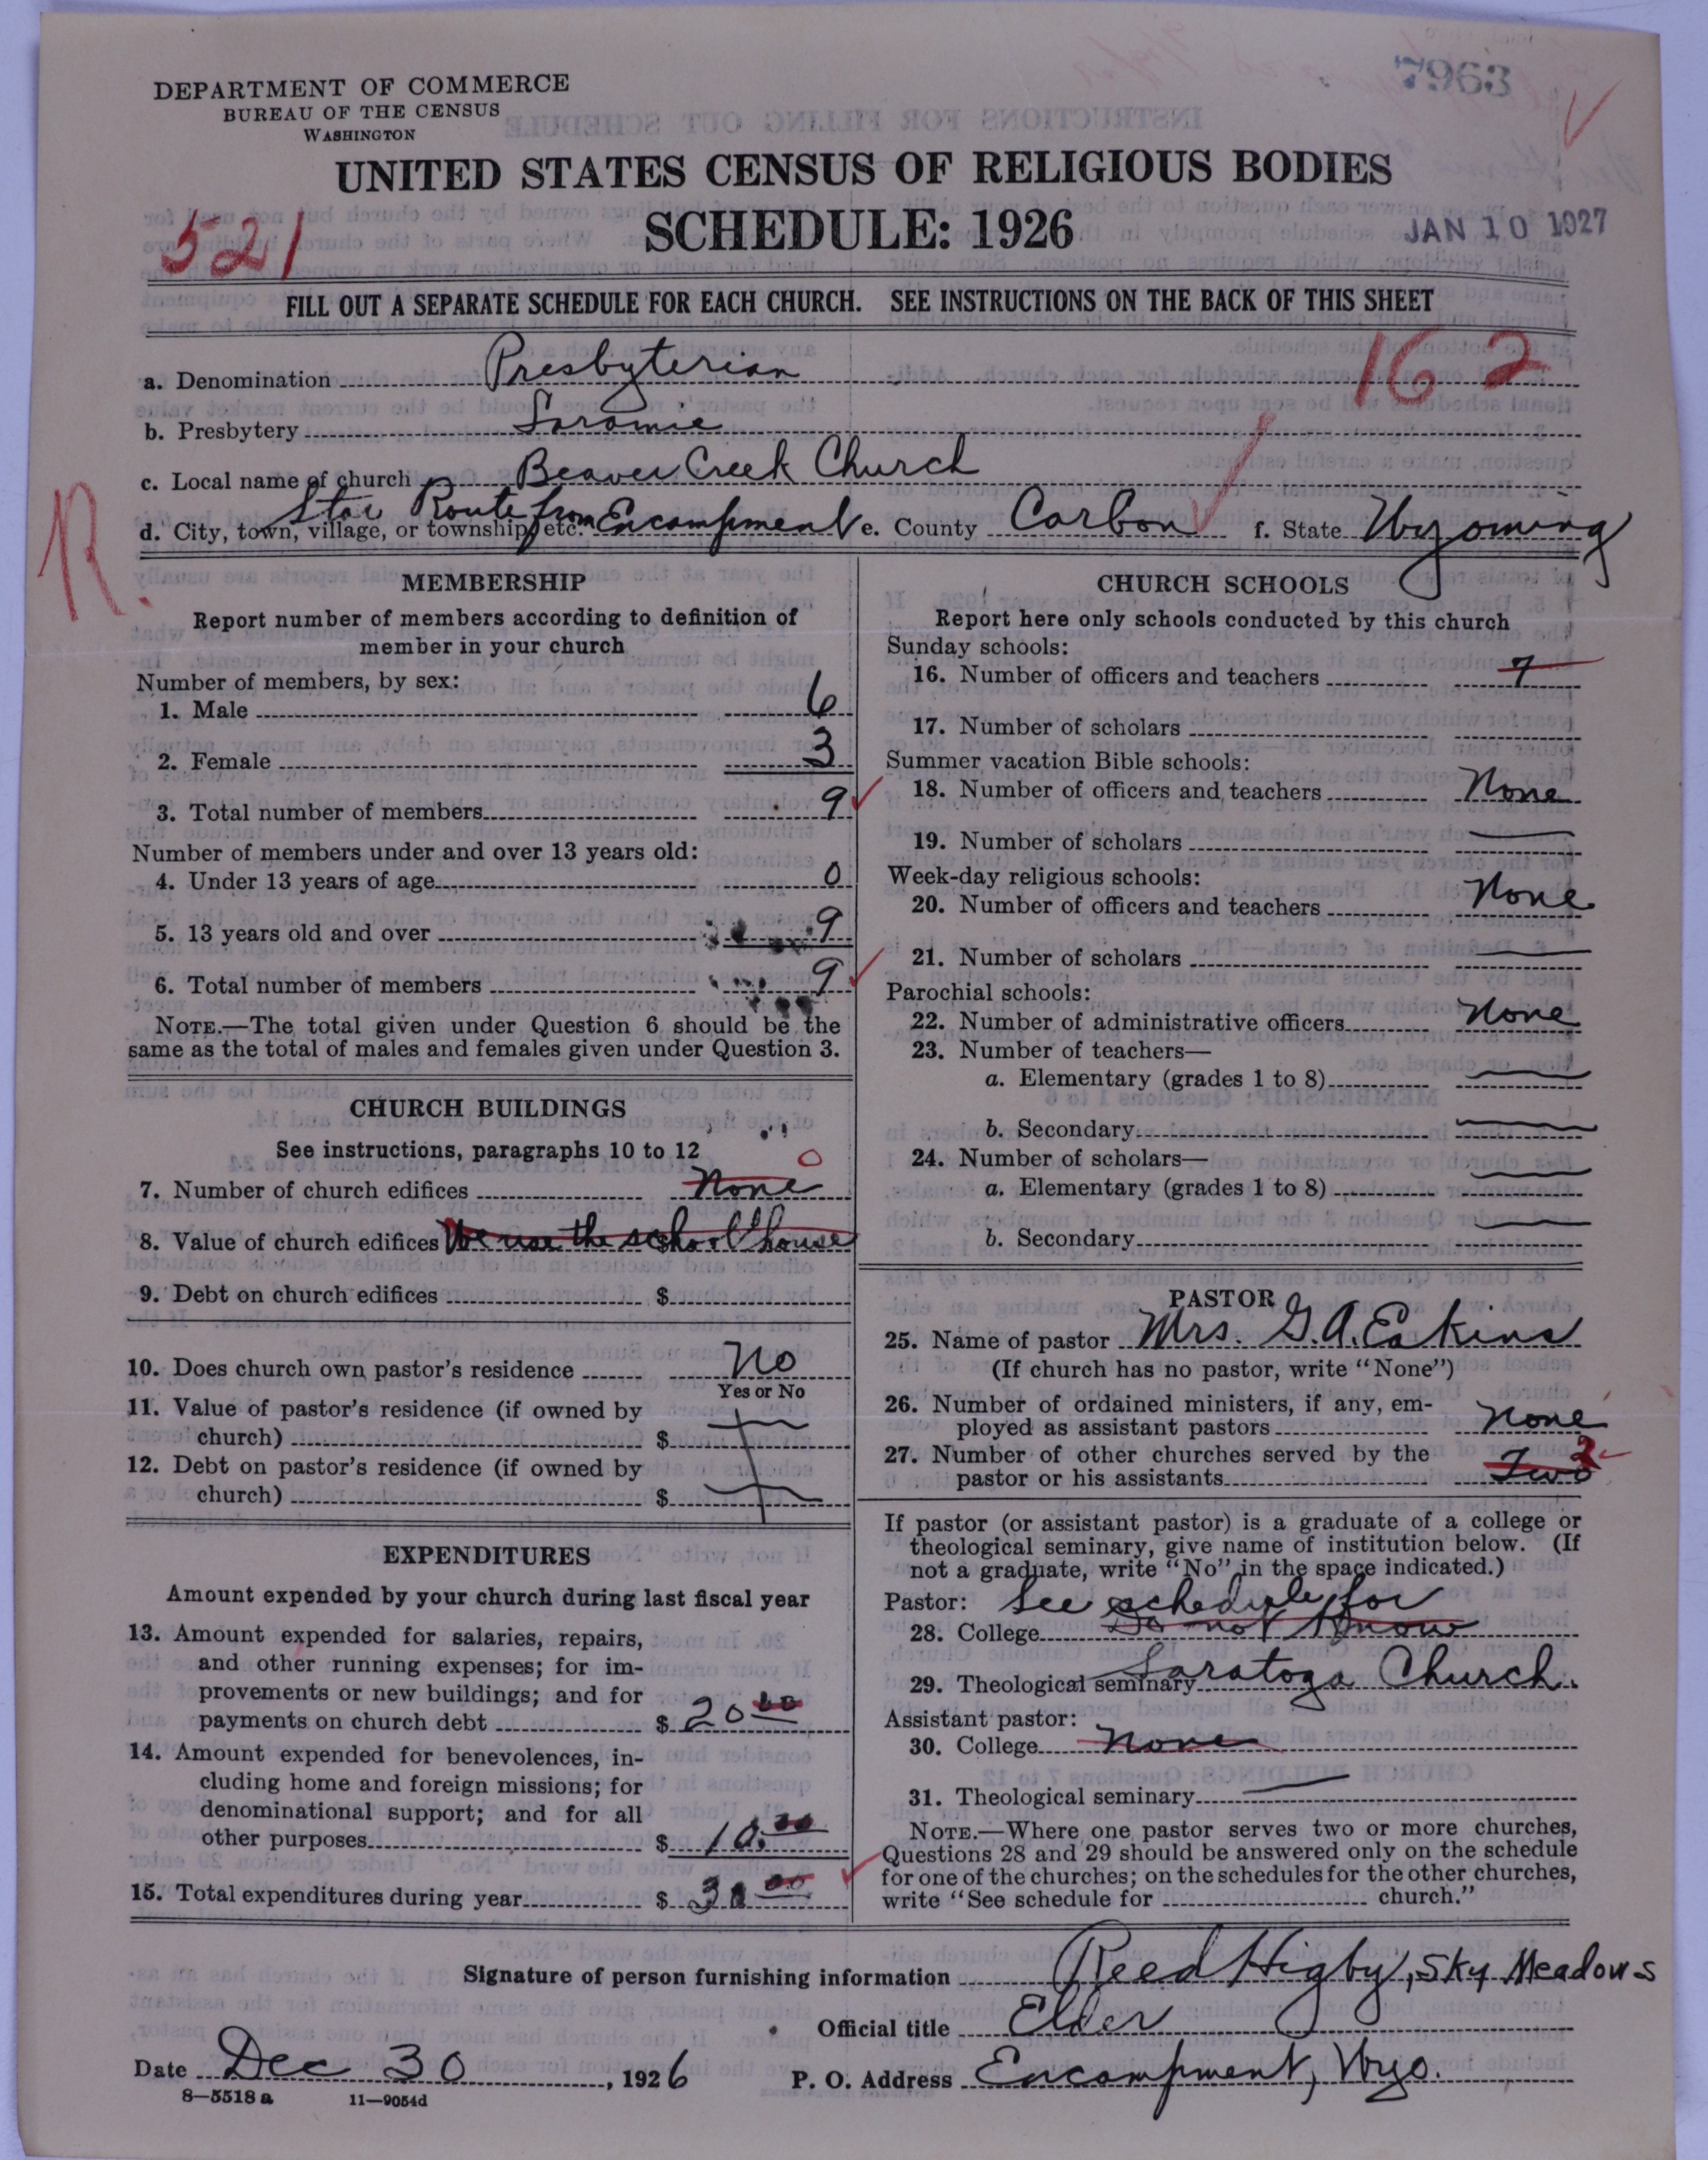 7963
DEPARTMENT OF COMMERCE
BUREAU OF THE CENSUS
WASHINGTON
UNITED STATES CENSUS OF RELIGIOUS BODIES
SCHEDULE: 1926
521
JAN 10 1927
FILL OUT A SEPARATE SCHEDULE FOR EACH CHURCH. SEE INSTRUCTIONS ON THE BACK OF THIS SHEET
162
a. Denomination Presbyterian
b. Presbytery Laramie
c. Local name of church Beaver Creek Church
d. City, town, village, or township, etc. Star Route from Encampment e. County Carbon f. State Wyoming
R.
MEMBERSHIP
Report number of members according to definition of
member in your church
Number of members, by sex:
1. Male 6
2. Female 3
3. Total number of members 9
Number of members under and over 13 years old:
4. Under 13 years of age 0
5. 13 years old and over 9
6. Total number of members 9
NOTE.—The total given under Question 6 should be the
same as the total of males and females given under Question 3.
CHURCH BUILDINGS
See instructions, paragraphs 10 to 12
7. Number of church edifices None 0
8. Value of church edifices We use the school house
9. Debt on church edifices $
10. Does church own pastor's residence No
Yes or No
11. Value of pastor's residence (if owned by
church) $
12. Debt on pastor's residence (if owned by
church) $
EXPENDITURES
Amount expended by your church during last fiscal year
13. Amount expended for salaries, repairs,
and other running expenses; for im-
provements or new buildings; and for
payments on church debt $ 20 00
14. Amount expended for benevolences, in-
cluding home and foreign missions; for
denominational support; and for all
other purposes $ 10.00
15. Total expenditures during year $ 30 00
CHURCH SCHOOLS
Report here only schools conducted by this church
Sunday schools:
16. Number of officers and teachers 7
17. Number of scholars
Summer vacation Bible schools:
18. Number of officers and teachers None
19. Number of scholars
Week-day religious schools:
20. Number of officers and teachers None
21. Number of scholars
Parochial schools:
22. Number of administrative officers None
23. Number of teachers—
a. Elementary (grades 1 to 8)
b. Secondary
24. Number of scholars—
a. Elementary (grades 1 to 8)
b. Secondary
PASTOR
25. Name of pastor Mrs. G. A. Eakins
(If church has no pastor, write "None")
26. Number of ordained ministers, if any, em-
ployed as assistant pastors None
27. Number of other churches served by the
pastor or his assistants Two 2
If pastor (or assistant pastor) is a graduate of a college or
theological seminary, give name of institution below. (If
not a graduate, write "No" in the space indicated.)
Pastor: See schedule for
28. College Do not Know
29. Theological seminary Saratoga Church.
Assistant pastor:
30. College None
31. Theological seminary
NOTE.—Where one pastor serves two or more churches,
Questions 28 and 29 should be answered only on the schedule
for one of the churches; on the schedules for the other churches,
write "See schedule for church."
Signature of person furnishing information Reed Higby, Sky Meadows
Official title Elder
Date Dec 30, 1926 P. O. Address Encampment, Wyo.
8—5518 a 11—9054d